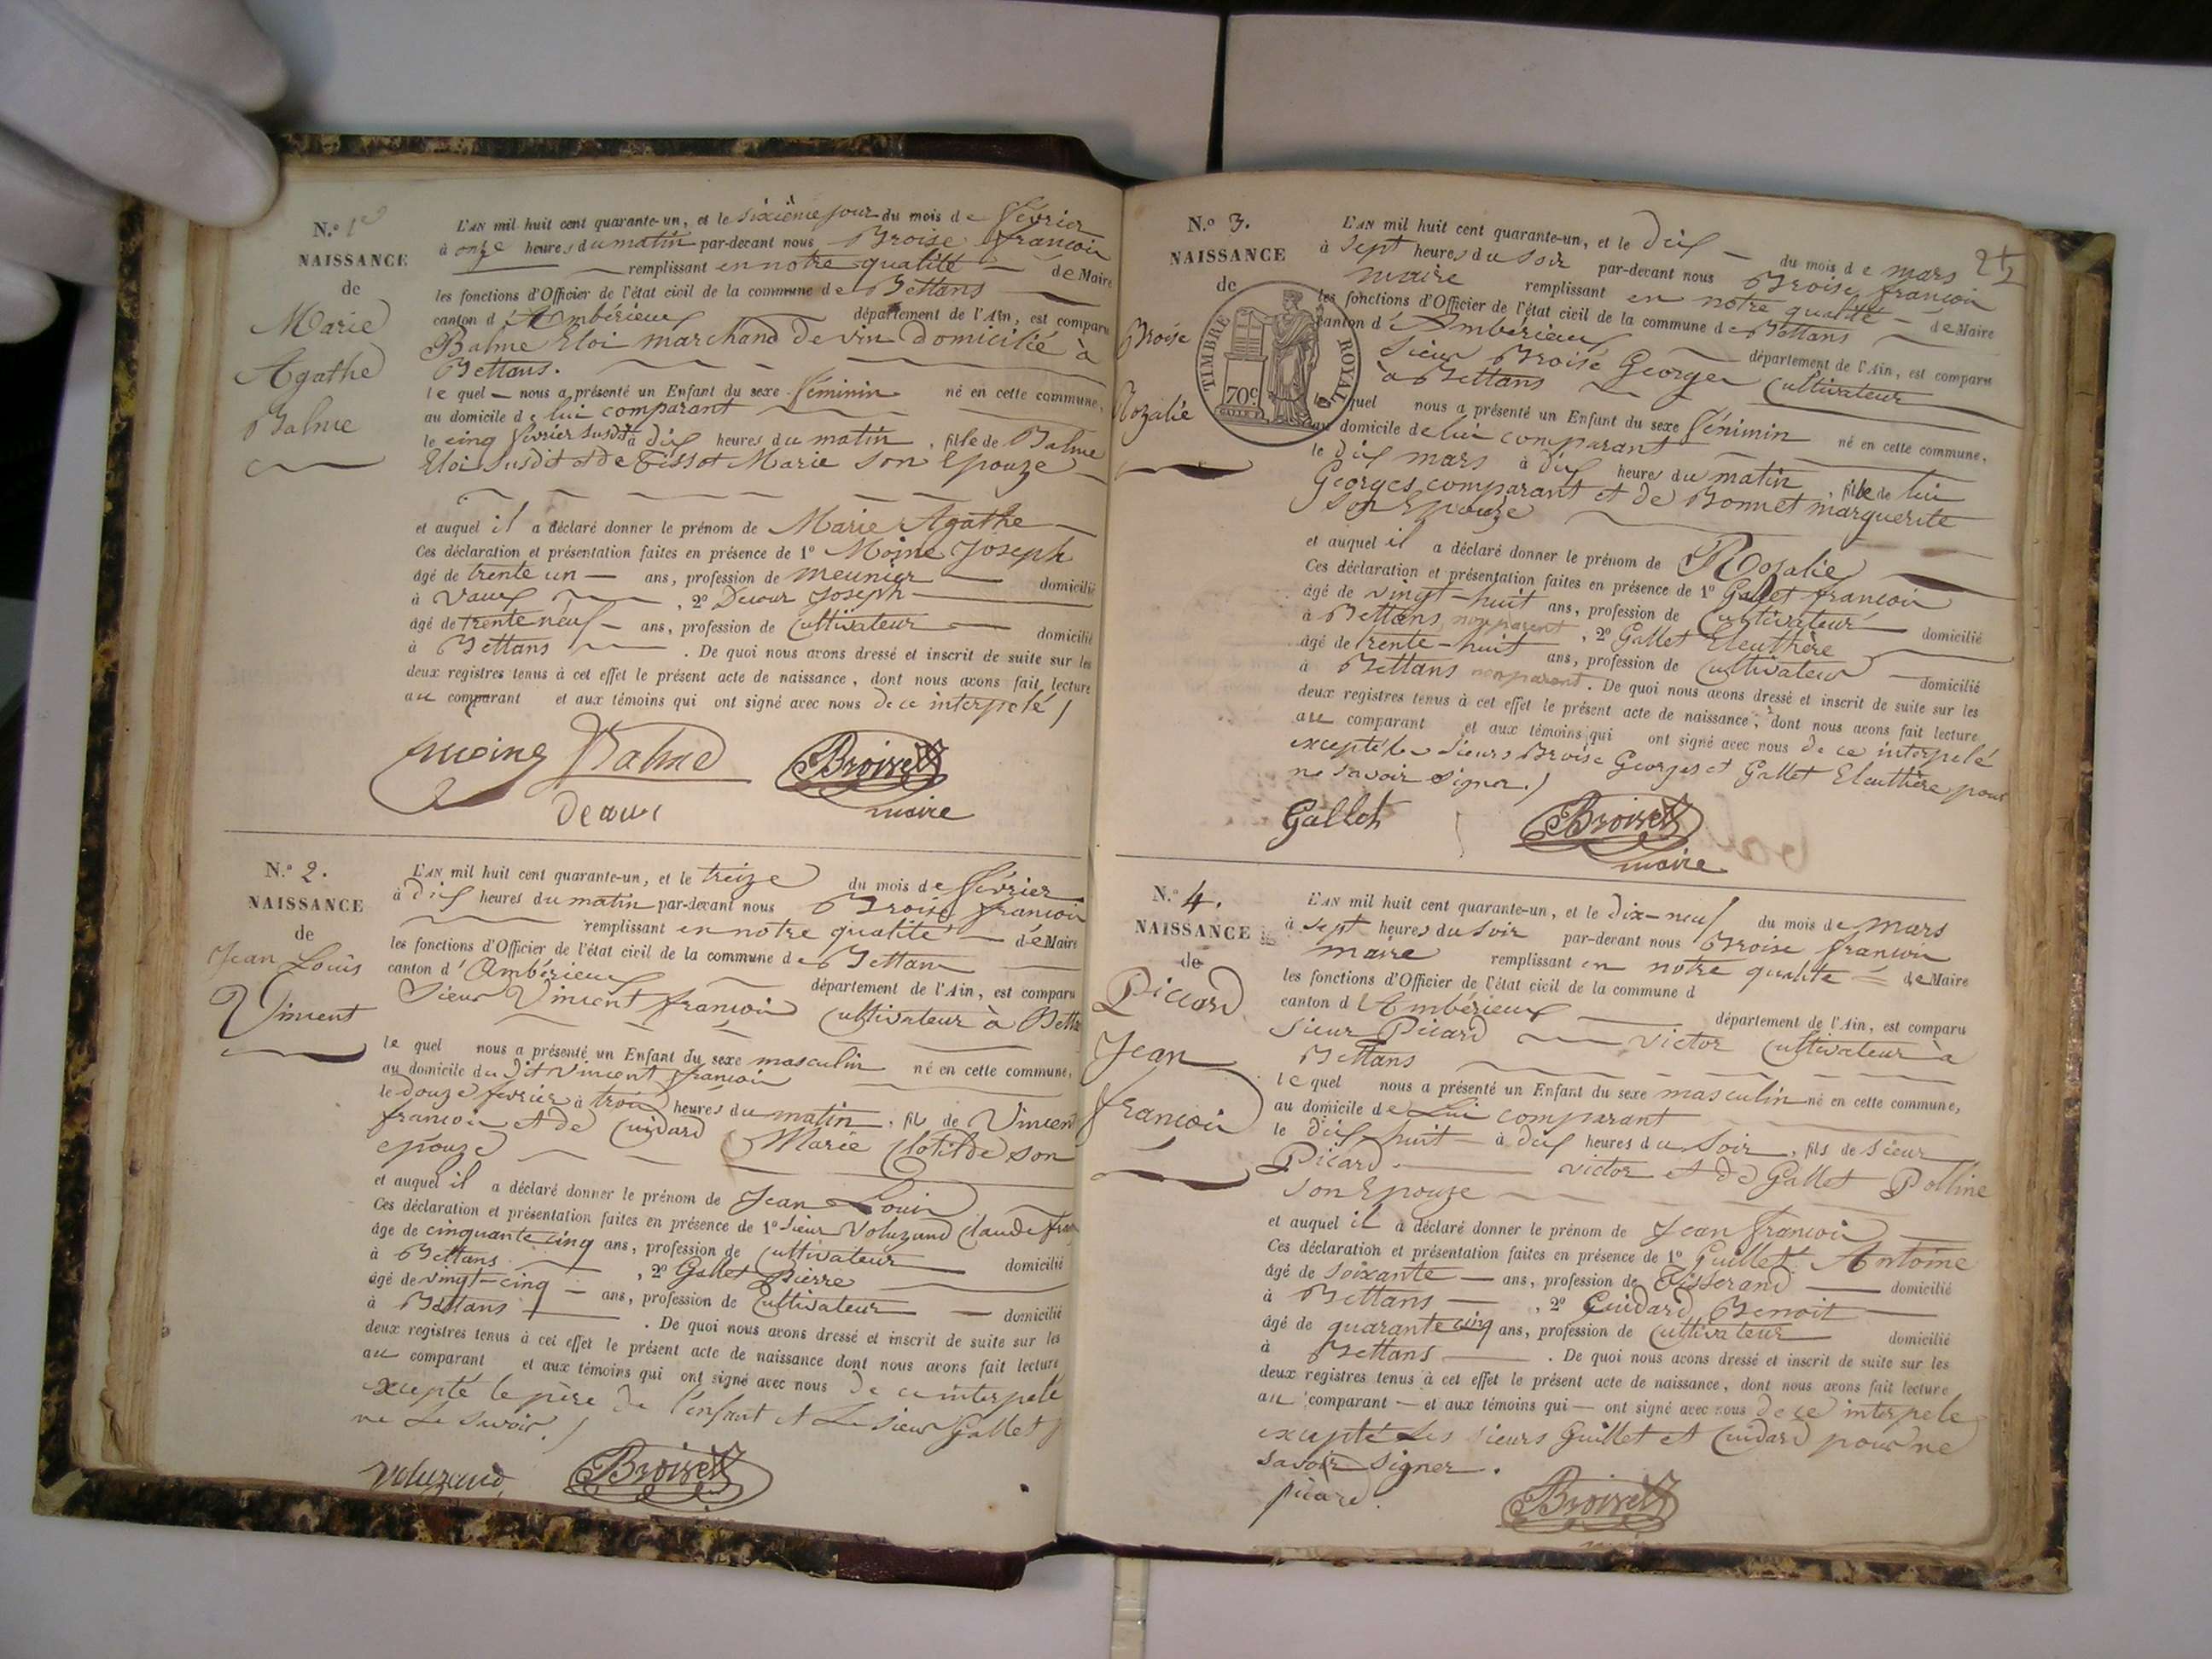 N.º 1er
NAISSANCE
de
Marie
Agathe
Balme
L'AN mil huit cent quarante-un, et le sixième jour du mois de février
à onze heures du matin par-devant nous Broise françois
remplissant en notre qualité de Maire
les fonctions d'Officier de l'état civil de la commune de Bettans
canton d'Ambérieux département de l'Ain, est comparu
Balme Eloi marchand de vin domicilié à
Bettans.
le quel nous a présenté un Enfant du sexe féminin né en cette commune,
au domicile de lui comparant
le cinq février susdit à dix heures du matin, fille de Balme
Eloi susdit et de Tissot Marie son Epouze
et auquel il a déclaré donner le prénom de Marie Agathe
Ces déclaration et présentation faites en présence de 1º Moine Joseph
âgé de trente un ans, profession de meunier domicilié
à Vaux, 2º Joseph
âgé de trente neuf ans, profession de Cultivateur domicilié
à Bettans. De quoi nous avons dressé et inscrit de suite sur les
deux registres tenus à cet effet le présent acte de naissance, dont nous avons fait lecture
au comparant et aux témoins qui ont signé avec nous de ce interpelé
Balme Broise
maire
N.º 2.
NAISSANCE
de
Jean Louis
Vincent
L'AN mil huit cent quarante-un, et le treize du mois de février
à dix heures du matin par-devant nous Broise françois
remplissant en notre qualité de Maire
les fonctions d'Officier de l'état civil de la commune de Bettans
canton d'Ambérieux département de l'Ain, est comparu
Sieur Vincent françois Cultivateur à Betta
le quel nous a présenté un Enfant du sexe masculin né en cette commune,
au domicile du dit Vincent françois
le douze février à trois heures du matin, fils de Vincent
françois et de Cuidard Marie Clotilde son
epouze
et auquel il a déclaré donner le prénom de Jean Louis
Ces déclaration et présentation faites en présence de 1º Sieur Voluzand Claude fran
âgé de cinquante cinq ans, profession de Cultivateur domicilié
à Bettans, 2º Gallet Pierre
âgé de vingt-cinq ans, profession de Cultivateur domicilié
à Bettans. De quoi nous avons dressé et inscrit de suite sur les
deux registres tenus à cet effet le présent acte de naissance dont nous avons fait lecture
au comparant et aux témoins qui ont signé avec nous de ce interpelé
excepté le père de l'enfant et le sieur Gallet p
ne le savoir.
Voluzand Broise
N.º 3.
NAISSANCE
de
Broise
Rozalie
TIMBRE ROYAL
70c
L'AN mil huit cent quarante-un, et le dix du mois de mars
à sept heures du soir par-devant nous Broise françois
maire remplissant en notre qualité de Maire
les fonctions d'Officier de l'état civil de la commune de Bettans
canton d'Ambérieux département de l'Ain, est comparu
Sieur Broise Georges Cultivateur
à Bettans
le quel nous a présenté un Enfant du sexe féminin né en cette commune,
au domicile de lui comparant
le dix mars à dix heures du matin, fille de lui
Georges comparant et de Bonnet marguerite
son Epouze
et auquel il a déclaré donner le prénom de Rozalie
Ces déclaration et présentation faites en présence de 1º Gallet françois
âgé de vingt-huit ans, profession de Cultivateur domicilié
à Bettans non parent, 2º Gallet Eleuthère
âgé de trente-huit ans, profession de Cultivateur domicilié
à Bettans non parent. De quoi nous avons dressé et inscrit de suite sur les
deux registres tenus à cet effet le présent acte de naissance, dont nous avons fait lecture
au comparant et aux témoins qui ont signé avec nous de ce interpelé
excepté les Sieurs Broise Georges et Gallet Eleuthère pour
ne savoir signer.
Gallet Broise
maire
N.º 4.
NAISSANCE
de
Picard
Jean
françois
L'AN mil huit cent quarante-un, et le dix-neuf du mois de mars
à sept heures du soir par-devant nous Broise françois
maire remplissant en notre qualité de Maire
les fonctions d'Officier de l'état civil de la commune d
canton d'Ambérieux département de l'Ain, est comparu
sieur Picard victor Cultivateur à
Bettans
le quel nous a présenté un Enfant du sexe masculin né en cette commune,
au domicile de Lui comparant
le dix-huit à dix heures du soir, fils de sieur
Picard victor et de Gallet Polline
son Epouze
et auquel il a déclaré donner le prénom de Jean françois
Ces déclaration et présentation faites en présence de 1º Guillet Antoine
âgé de soixante ans, profession de Tisserand domicilié
à Bettans, 2º Cuidard Benoit
âgé de quarante cinq ans, profession de Cultivateur domicilié
à Bettans. De quoi nous avons dressé et inscrit de suite sur les
deux registres tenus à cet effet le présent acte de naissance, dont nous avons fait lecture
au comparant et aux témoins qui ont signé avec nous de ce interpelé
excepté Les sieurs Guillet et Cuidard pour ne
savoir signer.
picard. Broise